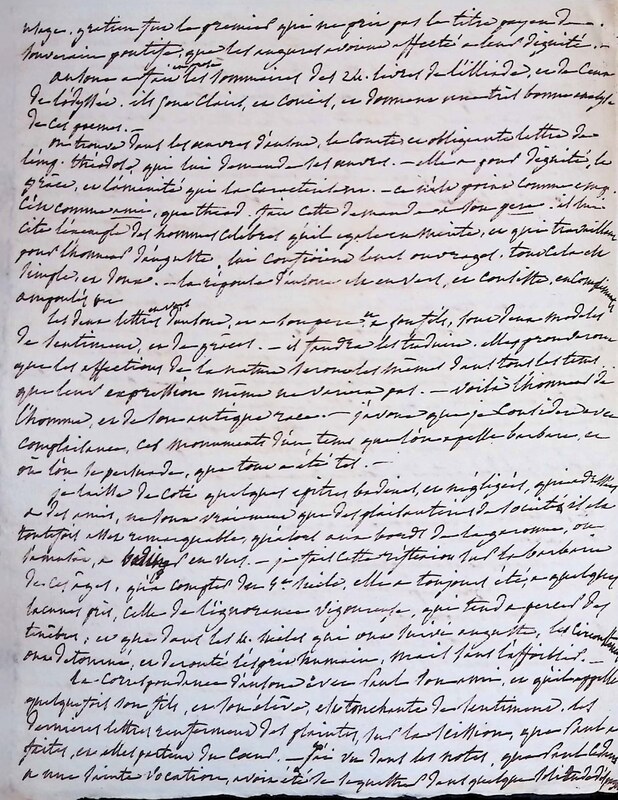 usage. gratien fut le premier qui ne prit pas le titre payen de
souverain pontife, que les augures avoient affecté à leur dignité. —
ausone a fait les sommaires des 24. livres de l'illiade, et de ceux
de l'odyssée. ils sont clairs, et concis, et donnent une très bonne analyse
de ces poemes. —
on trouve dans les œuvres d'ausone, la courte et obligeante lettre de
l'emp. théodose, qui lui demande ses œuvres. — elle a pour dignité, la
grâce, et l'aménité qui la caractérisent. — ce n'est point comme emp.
c'est comme ami, que théod. fait cette demande à son père. il lui
cite l'exemple des hommes célèbres qu'il égale en mérite, et qui travailloient
pour l'honneur d'auguste, lui confioient leurs ouvrages. tout cela est
simple, et doux. — la réponse d'ausone est en vers, et consiste, en complimens
ampoulés
les deux lettres en vers d'ausone, et à son père et à son fils, sont deux modèles
de sentiment, et de grâces. — il faudra les traduire. elles prouveront
que les affections de la nature seront les mêmes dans tous les tems
que leur expression même ne variera pas. — voilà l'honneur de
l'homme, et de son antique race. — j'avoue que je considère avec
complaisance, ces monuments d'un tems que l'on apelle barbare, et
où l'on se persuade, que tout a été tel. —
je laisse de coté quelques épitres badines, et négligées, qui adressées
à des amis, ne sont vraiment que des plaisanteries de société; il est
toutefois assez remarquable, qu'alors aux bords de la garonne, on
s'amusât, à en vers. — je fais cette réflexion sur la barbarie
de ces âges, qu'à compter du 5e siècle, elle a toujours été, à quelques
lacunes près, celle de l'ignorance vigoureuse, qui tend à percer des
ténèbres; et que dans les 4. siècles qui ont suivi auguste, les circonstances
ont détourné, et dérouté l'esprit humain, mais sans l'affoiblir. —
la correspondance d'ausone avec Paul son ami, et qu'il appelle
quelquefois son fils, et son élève, est touchante de sentiment. les
dernières lettres renferment des plaintes, sur la scission, que Paul a
faites, et elles partent du cœur. — j'ai vu dans les notes, que Paul
à une sainte vocation, avoit été se dans quelque